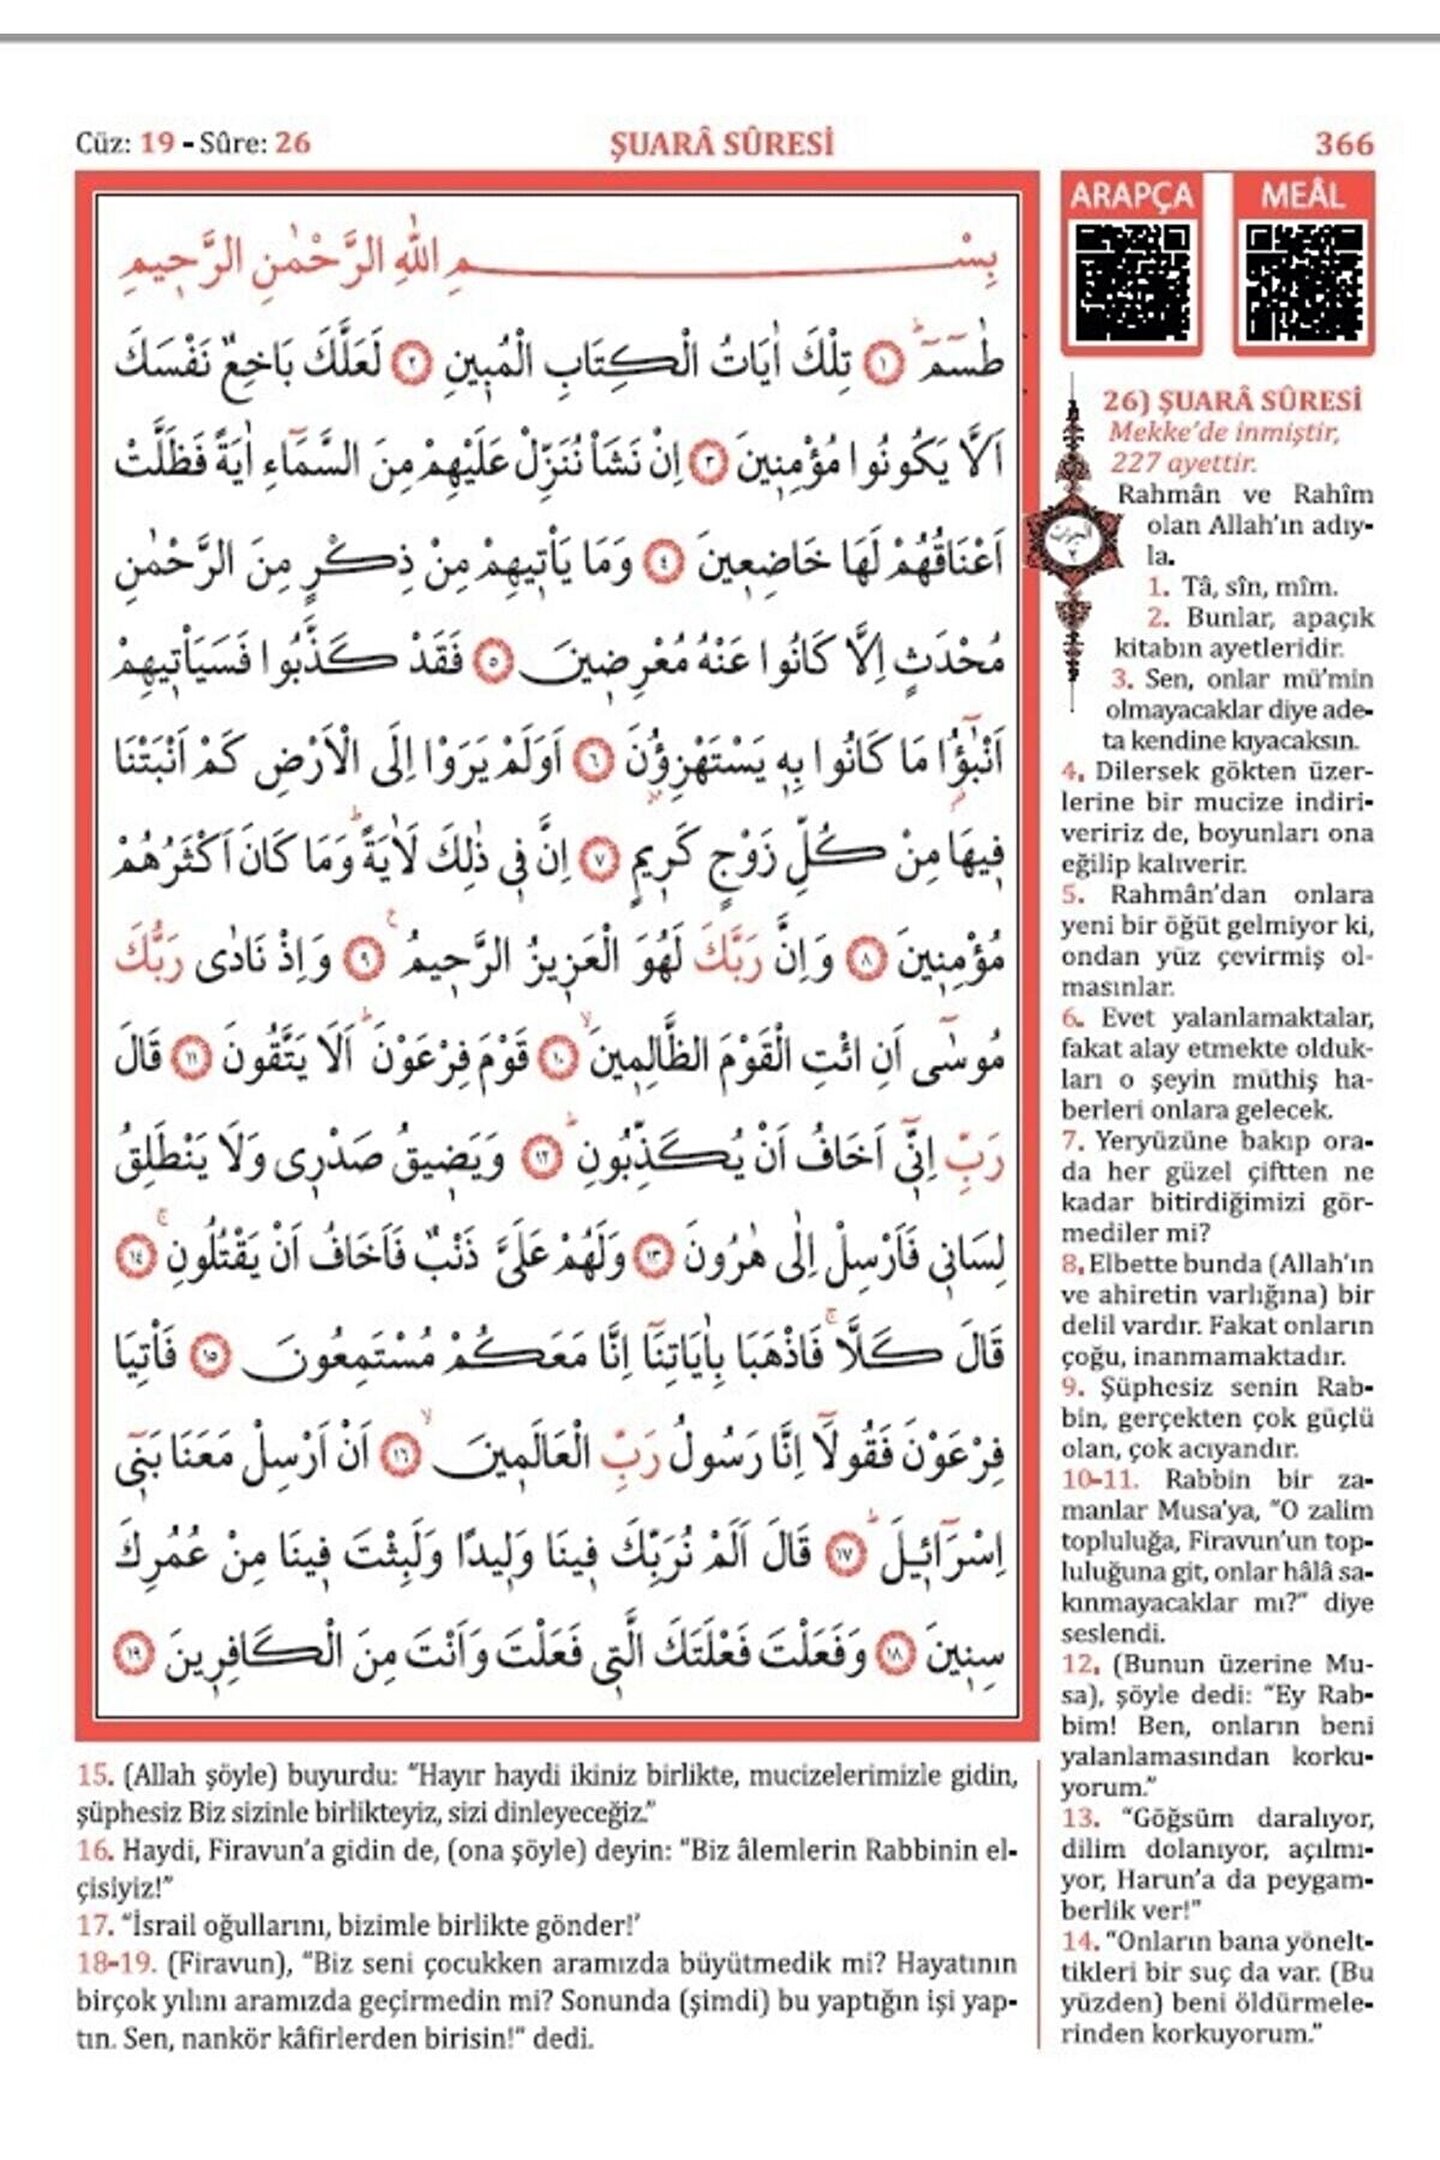 Cüz: 19 - Sûre: 26
ŞUARÂ SÛRESİ
366
بِسْمِ اللّٰهِ الرَّحْمٰنِ الرَّحِيمِ
طٰسٓمٓ ۜ ﴿١﴾ تِلْكَ اٰيَاتُ الْكِتَابِ الْمُبِينِ ﴿٢﴾ لَعَلَّكَ بَاخِعٌ نَفْسَكَ
اَلَّا يَكُونُوا مُؤْمِنِينَ ﴿٣﴾ اِنْ نَشَأْ نُنَزِّلْ عَلَيْهِمْ مِنَ السَّمَٓاءِ اٰيَةً فَظَلَّتْ
اَعْنَاقُهُمْ لَهَا خَاضِعِينَ ﴿٤﴾ وَمَا يَأْتِيهِمْ مِنْ ذِكْرٍ مِنَ الرَّحْمٰنِ
مُحْدَثٍ اِلَّا كَانُوا عَنْهُ مُعْرِضِينَ ﴿٥﴾ فَقَدْ كَذَّبُوا فَسَيَأْتِيهِمْ
اَنْبٰٓؤُ۬ا مَا كَانُوا بِهِ يَسْتَهْزِؤُ۫نَ ﴿٦﴾ اَوَلَمْ يَرَوْا اِلَى الْاَرْضِ كَمْ اَنْبَتْنَا
فِيهَا مِنْ كُلِّ زَوْجٍ كَرِيمٍ ﴿٧﴾ اِنَّ فِي ذٰلِكَ لَاٰيَةً ۜ وَمَا كَانَ اَكْثَرُهُمْ
مُؤْمِنِينَ ﴿٨﴾ وَاِنَّ رَبَّكَ لَهُوَ الْعَزِيزُ الرَّحِيمُ ﴿٩﴾ وَاِذْ نَادٰى رَبُّكَ
مُوسٰٓى اَنِ ائْتِ الْقَوْمَ الظَّالِمِينَ ﴿١٠﴾ قَوْمَ فِرْعَوْنَ ۜ اَلَا يَتَّقُونَ ﴿١١﴾ قَالَ
رَبِّ اِنِّٓي اَخَافُ اَنْ يُكَذِّبُونِ ﴿١٢﴾ وَيَضِيقُ صَدْرِي وَلَا يَنْطَلِقُ
لِسَانِي فَاَرْسِلْ اِلٰى هٰرُونَ ﴿١٣﴾ وَلَهُمْ عَلَيَّ ذَنْبٌ فَاَخَافُ اَنْ يَقْتُلُونِ ﴿١٤﴾
قَالَ كَلَّا فَاذْهَبَا بِاٰيَاتِنَٓا اِنَّا مَعَكُمْ مُسْتَمِعُونَ ﴿١٥﴾ فَأْتِيَا
فِرْعَوْنَ فَقُولَٓا اِنَّا رَسُولُ رَبِّ الْعَالَمِينَ ﴿١٦﴾ اَنْ اَرْسِلْ مَعَنَا بَنِٓي
اِسْرَٓائِيلَ ﴿١٧﴾ قَالَ اَلَمْ نُرَبِّكَ فِينَا وَلِيدًا وَلَبِثْتَ فِينَا مِنْ عُمُرِكَ
سِنِينَ ﴿١٨﴾ وَفَعَلْتَ فَعْلَتَكَ الَّتِي فَعَلْتَ وَاَنْتَ مِنَ الْكَافِرِينَ ﴿١٩﴾
ARAPÇA
MEÂL
26) ŞUARÂ SÛRESİ
Mekke'de inmiştir,
227 ayettir.
Rahmân ve Rahîm
olan Allah'ın adıy-
la.
1. Tâ, sîn, mîm.
2. Bunlar, apaçık
kitabın ayetleridir.
3. Sen, onlar mü'min
olmayacaklar diye ade-
ta kendine kıyacaksın.
4. Dilersek gökten üzer-
lerine bir mucize indiri-
veririz de, boyunları ona
eğilip kalıverir.
5. Rahmân'dan onlara
yeni bir öğüt gelmiyor ki,
ondan yüz çevirmiş ol-
masınlar.
6. Evet yalanlamaktalar,
fakat alay etmekte olduk-
ları o şeyin müthiş ha-
berleri onlara gelecek.
7. Yeryüzüne bakıp ora-
da her güzel çiftten ne
kadar bitirdiğimizi gör-
mediler mi?
8. Elbette bunda (Allah'ın
ve ahiretin varlığına) bir
delil vardır. Fakat onların
çoğu, inanmamaktadır.
9. Şüphesiz senin Rab-
bin, gerçekten çok güçlü
olan, çok acıyandır.
10-11. Rabbin bir za-
manlar Musa'ya, "O zalim
topluluğa, Firavun'un top-
luluğuna git, onlar hâlâ sa-
kınmayacaklar mı?" diye
seslendi.
12. (Bunun üzerine Mu-
sa), şöyle dedi: "Ey Rab-
bim! Ben, onların beni
yalanlamasından korku-
yorum."
13. "Göğsüm daralıyor,
dilim dolanıyor, açılmı-
yor, Harun'a da peygam-
berlik ver!"
14. "Onların bana yönelt-
tikleri bir suç da var. (Bu
yüzden) beni öldürmele-
rinden korkuyorum."
15. (Allah şöyle) buyurdu: "Hayır haydi ikiniz birlikte, mucizelerimizle gidin,
şüphesiz Biz sizinle birlikteyiz, sizi dinleyeceğiz."
16. Haydi, Firavun'a gidin de, (ona şöyle) deyin: "Biz âlemlerin Rabbinin el-
çisiyiz!"
17. "İsrail oğullarını, bizimle birlikte gönder!'
18-19. (Firavun), "Biz seni çocukken aramızda büyütmedik mi? Hayatının
birçok yılını aramızda geçirmedin mi? Sonunda (şimdi) bu yaptığın işi yap-
tın. Sen, nankör kâfirlerden birisin!" dedi.